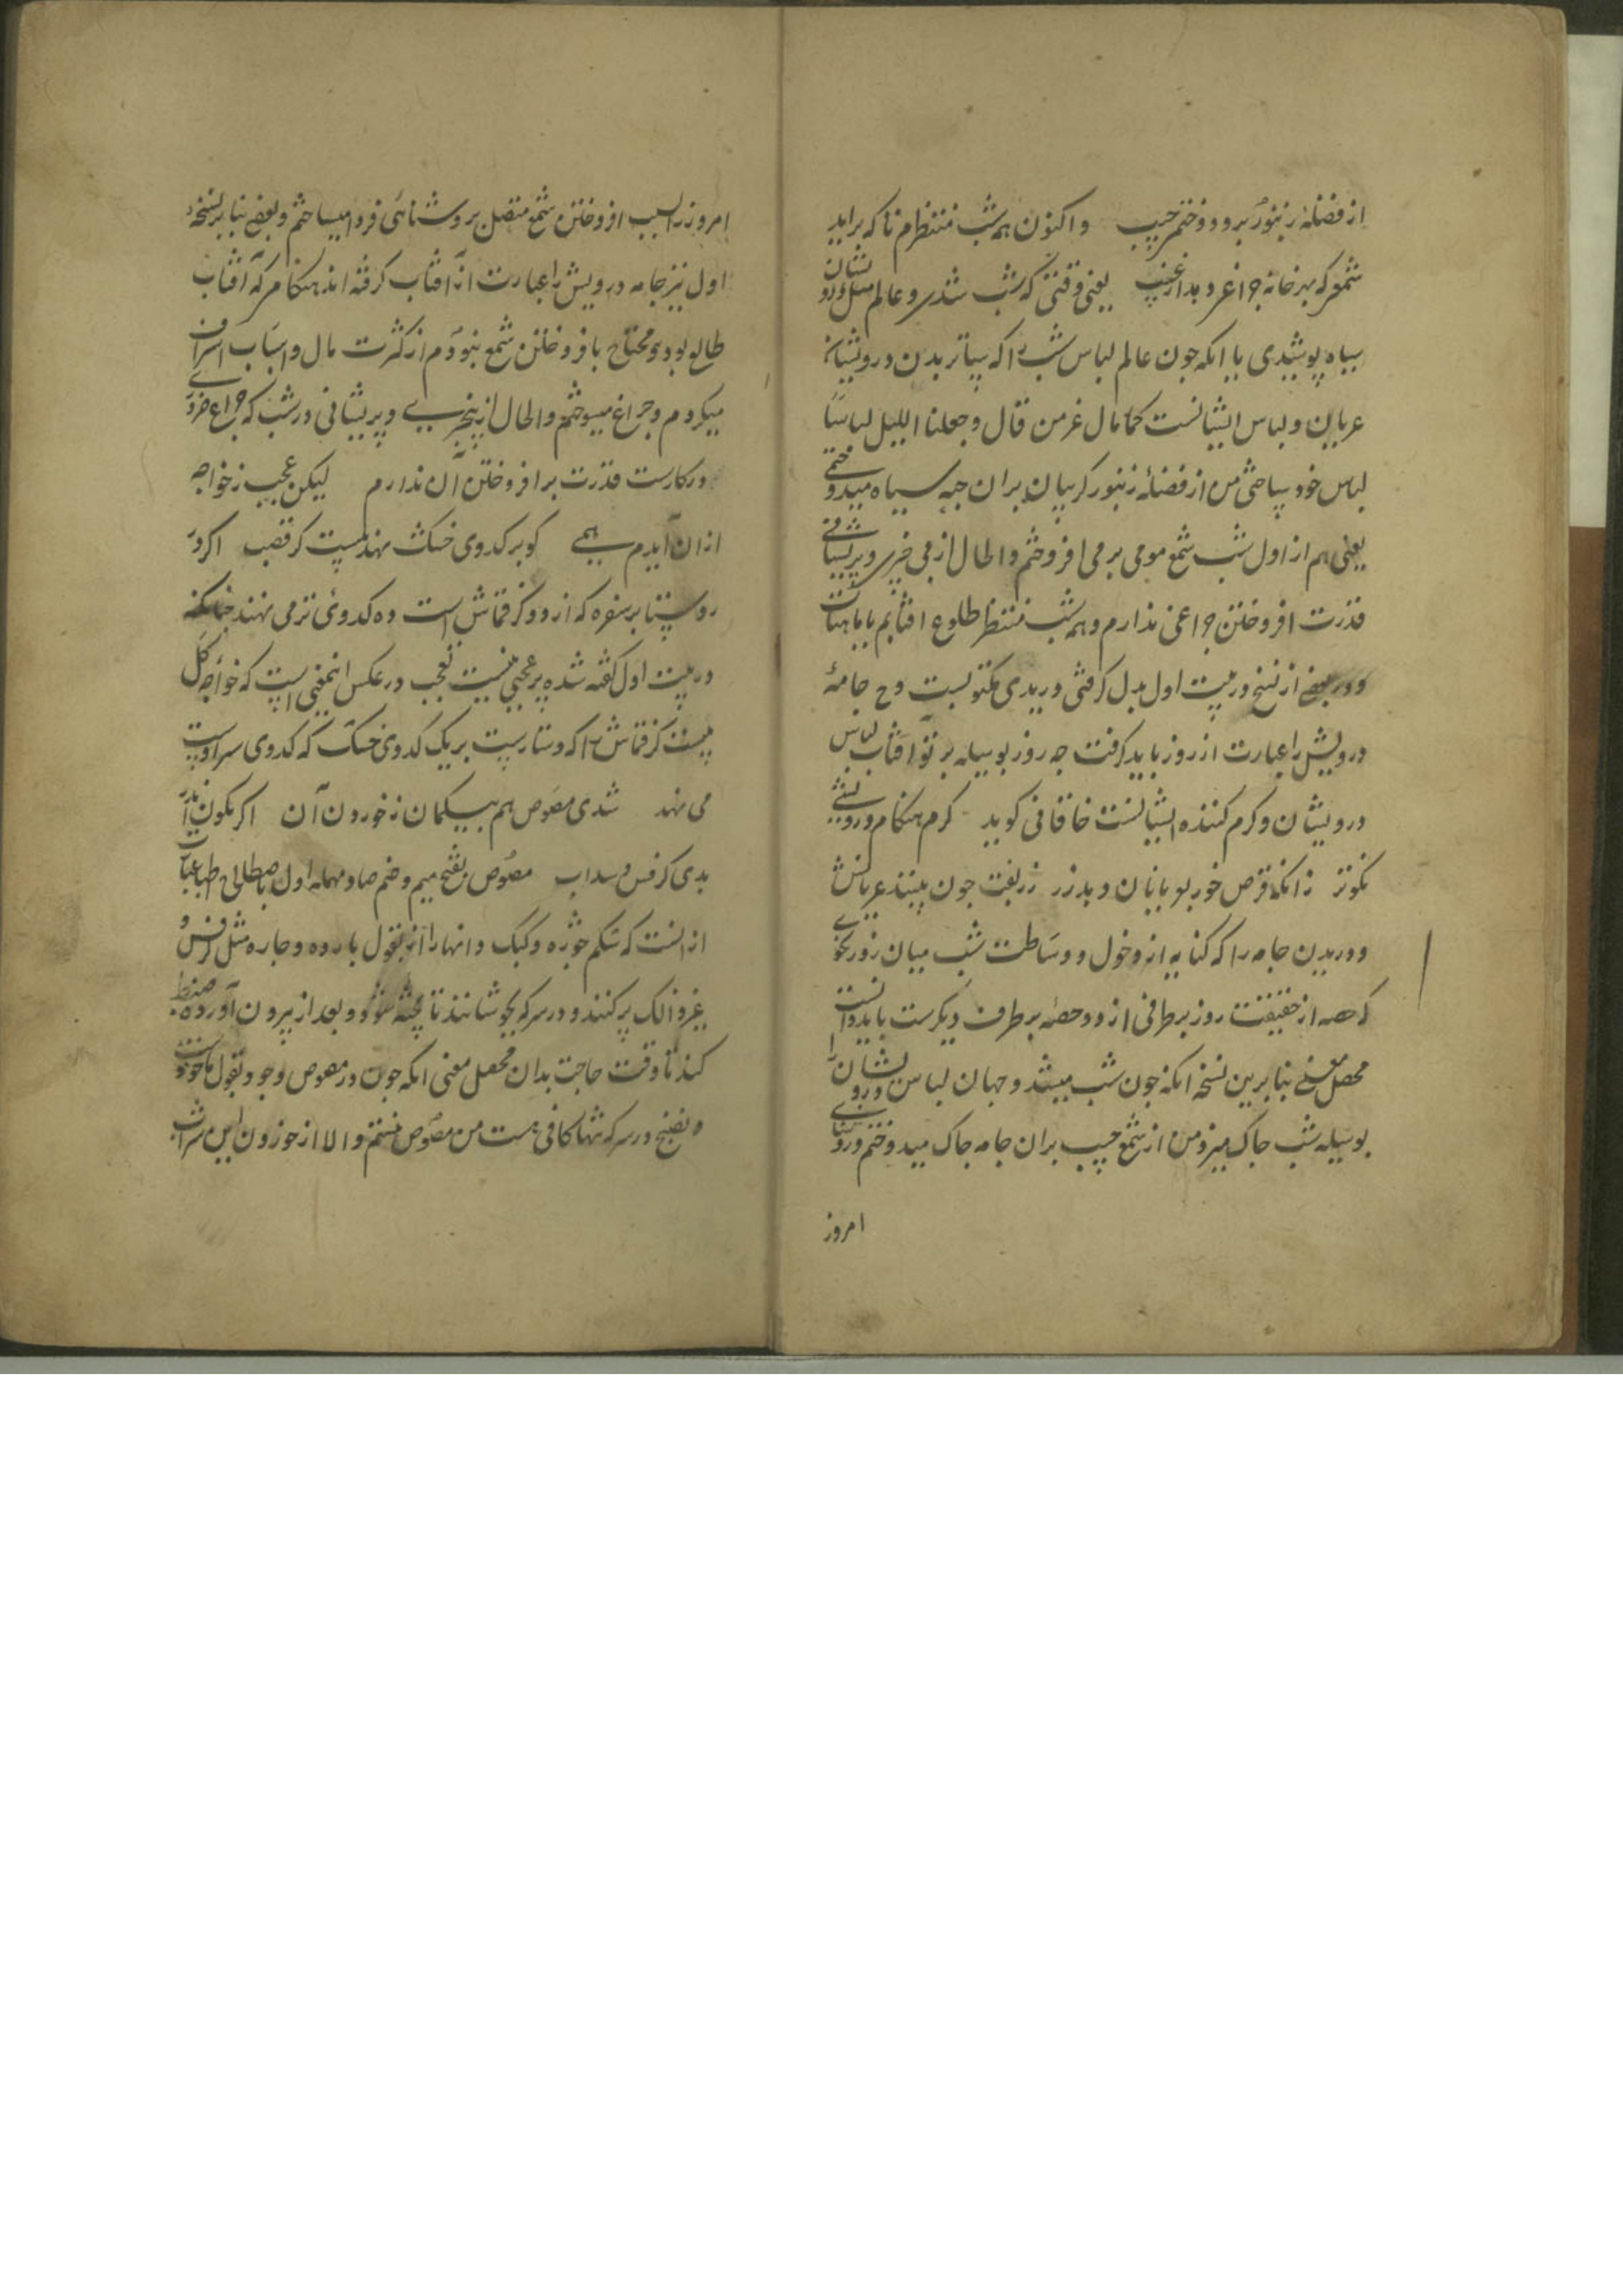 از فضلهٔ زنبور برو دوختم جیب واکنون همه شب منتظرم تا که براید
شمعی که بهر خانه چراغی دهد از غیب یعنی وقتی که شب شدی و عالم مثل درویشان
سیاه پوشیدی یا انکه چون عالم لباس شب را که ساتر بدن درویشان
عریان و لباس ایشانست کما قال عز من قال وجعلنا اللیل لباسا
لباس خود ساختی من از فضلهٔ زنبور گریبان بران جبه سیاه میدوختمی
یعنی هم از اول شب شمع مومی بر می افروختم والحال از بی خبری و پریشانی
قدرت افروختن چراغی ندارم و همه شب منتظر طلوع افتابم یا ماهتاب
ودر بعضی از نسخ در بیت اول بدل گرفتی دریدی مکتوبست وح جامهٔ
درویش را عبارت از روز باید گرفت چه روز بوسیله پرتو افتاب لباس
درویشان و گرم کننده ایشانست خاقانی گوید گرم هنگام درویشی
نکوتر زانکه قرص خور بلو یا نان و بد زر زربفت چون بینند عریانش
ودریدن جامه را که کنایه از دخول و وساطت شب میان روز بنحوی
که حصه از حقیقت روز بر طرفی از دو حصه بر طرف دیگرست باید دانست
محصل معنی بنابرین نسخه انکه چون شب میشد و جهان لباس درویشان را
بوسیله شب چاک میزد من از شمع جیب بران جامه چاک میدوختم و روشنای
امروز
امروز را بسبب افروختن شمع متصل بروشنائی فردا میساختم و بعضی بنا بر نسخه
اول نیز جامه درویش را عبارت از آفتاب گرفته اند هنگامی که آفتاب
طالع بودی محتاج بافروختن شمع نبودم از کثرت مال و اسباب اسراف
میکردم و چراغ میسوختم والحال از بی خبری و پریشانی در شب که چراغ ضروری
در کارست قدرت بر افروختن آن ندارم لیکن عجب ز خواجه
ازان آیدم همی کو بر کدوی خشک نهد بیست گز قصب اگر در
روستا بر سفره که از دو گز قماش است ده کدوئی تر می نهند چنانکه
در بیت اول گفته شده پر عجبی نیست تعجب در عکس اینمعنی است که خواجه کل
بیست گز قماش را که دستارست بر یک کدوی خشک که کدوی سر اوست
می نهد شدی مصوص هم بیگمان ز خوردن آن اگر نکون اندر
بدی کرفس و سداب مصوص بفتح میم و ضم صاد مهمله اول باصطلاح اطبا عبارت
ازانست که شکم جوژه و کبک و انها را از بقول بارده و حاره مثل کرفس و
غیر ذالک پر کنند و در سرکه بجوشانند تا پخته شود و بعد از بیرون آورده ضبط
کنند تا وقت حاجت بدان محصل معنی انکه چون در مصوص وجود بقول ماخوذست
و نضج در سرکه تنها کافی نیست من مصوص نیستم والا از خوردن این شراب